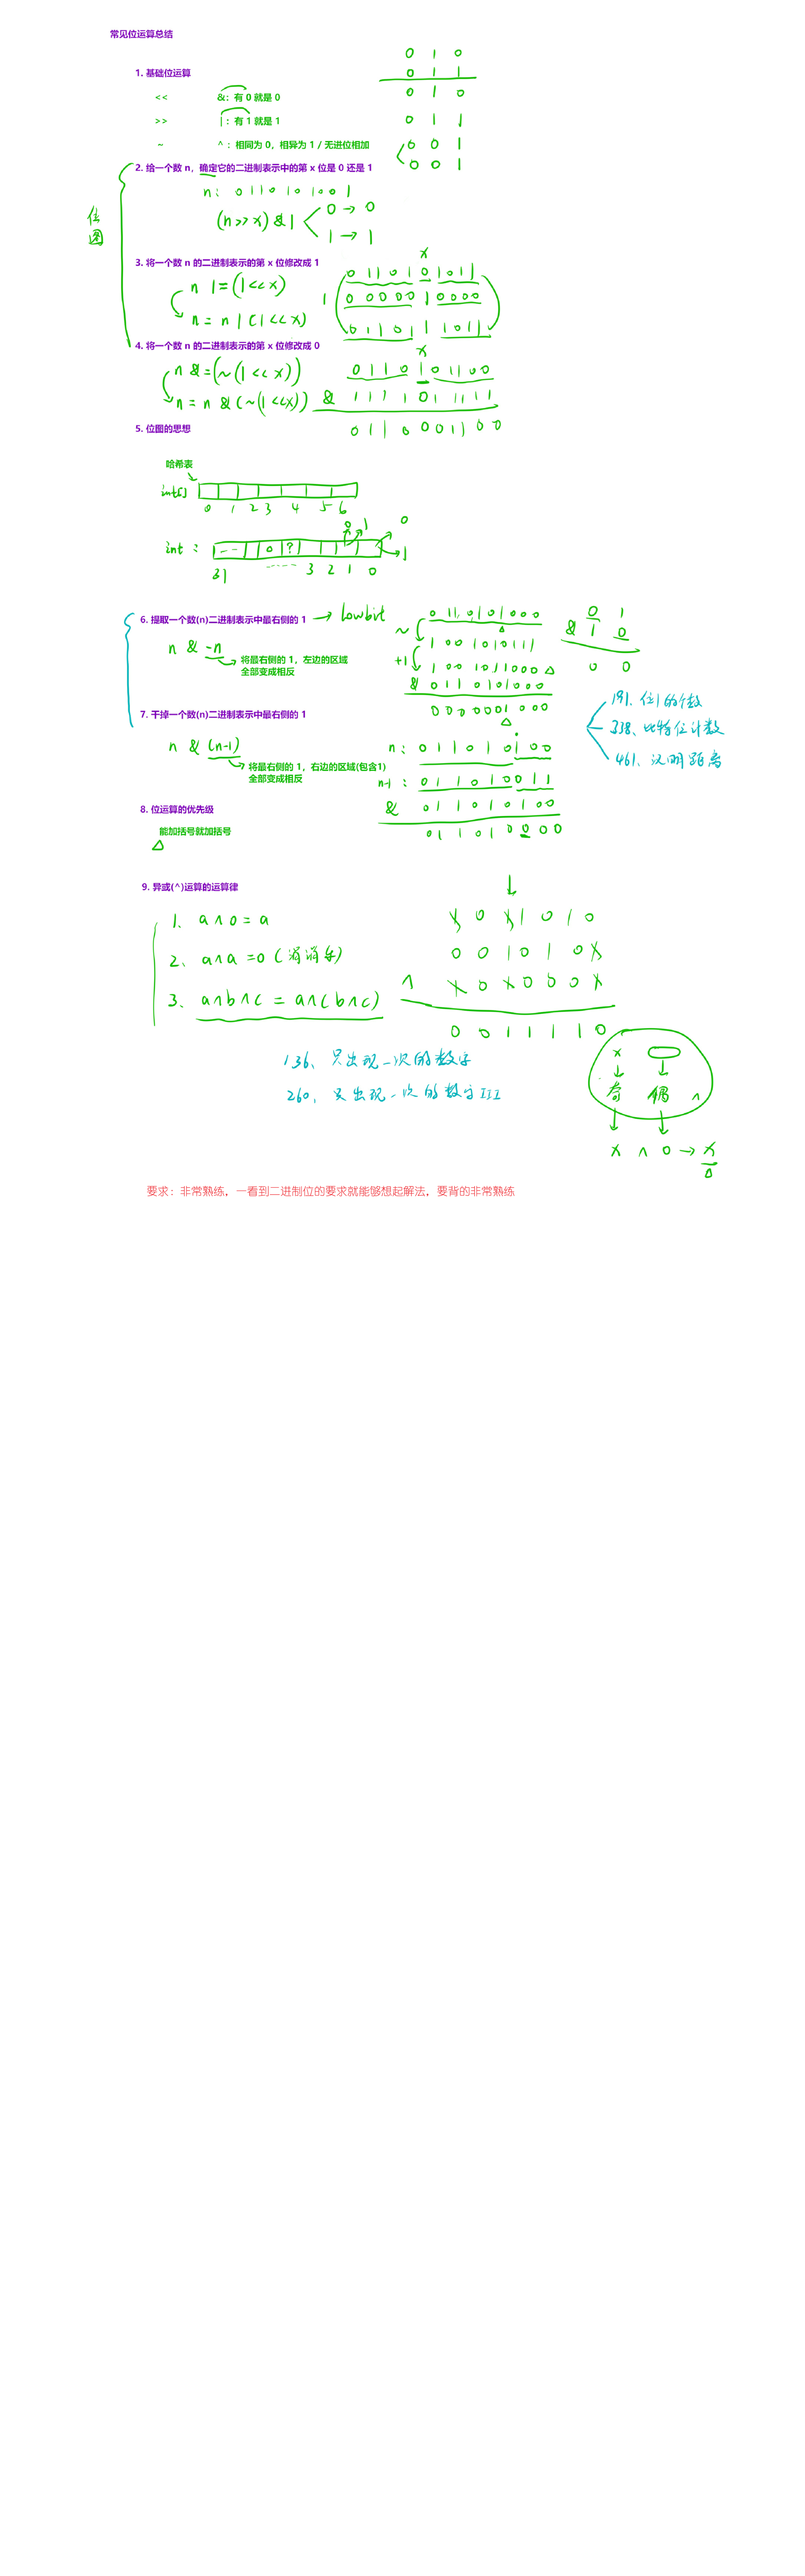 常见位运算总结
0 1 0
0 1 1
1. 基础位运算
0 1 0
<< &: 有 0 就是 0
>> | : 有 1 就是 1
0 1 1
~ ^ : 相同为 0，相异为 1 / 无进位相加
0 0 1
0 0 1
2. 给一个数 n，确定它的二进制表示中的第 x 位是 0 还是 1
n: 0 1 1 0 1 0 1 0 0 1
位图
(n >> x) & 1
0 → 0
1 → 1
3. 将一个数 n 的二进制表示的第 x 位修改成 1
x
n |= (1 << x)
n = n | (1 << x)
|
0 1 1 0 1 0 1 0 1 1
0 0 0 0 0 1 0 0 0 0
0 1 1 0 1 1 1 0 1 1
4. 将一个数 n 的二进制表示的第 x 位修改成 0
x
n &= (~(1 << x))
n = n & (~(1 << x))
0 1 1 0 1 0 1 1 0 0
& 1 1 1 1 0 1 1 1 1 1
0 1 1 0 0 0 1 1 0 0
5. 位图的思想
哈希表
int[]
0 1 2 3 4 5 6
0 1 0
int :
0 ?
1
31 3 2 1 0
6. 提取一个数(n)二进制表示中最右侧的 1 → lowbit
n & -n
将最右侧的 1，左边的区域
全部变成相反
0 1 1 0 1 0 1 0 0 0
~ 1 0 0 1 0 1 0 1 1 1
+1 1 0 0 1 0 1 1 0 0 0
& 0 1 1 0 1 0 1 0 0 0
0 0 0 0 0 0 1 0 0 0
0 1
& 1 0
0 0
191、位1的个数
338、比特位计数
461、汉明距离
7. 干掉一个数(n)二进制表示中最右侧的 1
n & (n-1)
将最右侧的 1，右边的区域(包含1)
全部变成相反
n: 0 1 1 0 1 0 1 0 0
n-1 : 0 1 1 0 1 0 0 1 1
& 0 1 1 0 1 0 1 0 0
0 1 1 0 1 0 0 0 0
8. 位运算的优先级
能加括号就加括号
9. 异或(^)运算的运算律
1、a ^ 0 = a
2、a ^ a = 0 (消消乐)
3、a ^ b ^ c = a ^ (b ^ c)
1 0 1 1 0 1 0
0 0 1 0 1 0 1
^ 1 0 1 0 0 0 1
0 0 1 1 1 1 0
136、只出现一次的数字
260、只出现一次的数字 III
x
奇 偶 ^
x ^ 0 → x
要求：非常熟练，一看到二进制位的要求就能够想起解法，要背的非常熟练